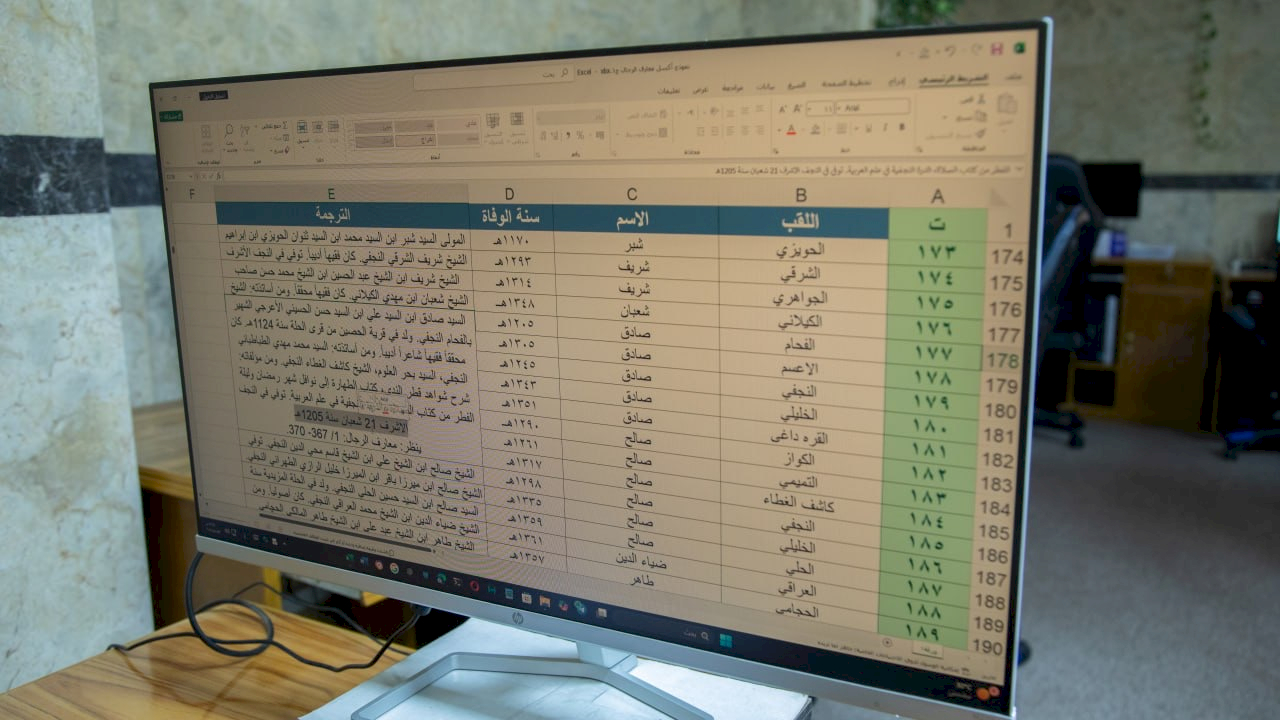 نموذج أكسل معارف الرجال ج1.xlsx - Excel
بحث
ملف الشريط الرئيسي إدراج تخطيط الصفحة الصيغ بيانات مراجعة عرض تعليمات
Arial
الفطر من كتاب المسالك الدرة النجفية في علم العربية. توفي في النجف الأشرف 21 شعبان سنة 1205هـ
A B C D E F
1 ت اللقب الاسم سنة الوفاة الترجمة
174 ١٧٣ الحويزي شبر ١١٧٠هـ
175 ١٧٤ الشرقي شريف ١٢٩٣هـ
176 ١٧٥ الجواهري شريف ١٣١٤هـ
177 ١٧٦ الكيلاني شعبان ١٣٤٨هـ
178 ١٧٧ الفحام صادق ١٢٠٥هـ
179 ١٧٨ الاعسم صادق ١٣٠٥هـ
180 ١٧٩ النجفي صادق ١٢٤٥هـ
181 ١٨٠ الخليلي صادق ١٣٤٣هـ
182 ١٨١ القره داغى صادق ١٣٥١هـ
183 ١٨٢ الكواز صالح ١٢٩٠هـ
184 ١٨٣ التميمي صالح ١٢٦١هـ
185 ١٨٤ كاشف الغطاء صالح ١٣١٧هـ
186 ١٨٥ النجفي صالح ١٢٩٨هـ
187 ١٨٦ الخليلي صالح ١٣٣٥هـ
188 ١٨٧ الحلي صالح ١٣٥٩هـ
189 ١٨٨ العراقي ضياء الدين ١٣٦١هـ
190 ١٨٩ الحجامي طاهر ١٣٥٧هـ
المولى السيد شبر ابن السيد محمد ابن السيد ثنوان الحويزي ابن إبراهيم
الشيخ شريف الشرقي النجفي. كان فقيهاً أديباً. توفي في النجف الأشرف
الشيخ شريف ابن الشيخ عبد الحسين ابن الشيخ محمد حسن صاحب
الشيخ شعبان ابن مهدي الكيلاني. كان فقيهاً محققاً. ومن أساتذته: الشيخ
السيد صادق ابن السيد علي ابن السيد حسن الحسيني الأعرجي الشهير
بالفحام النجفي. ولد في قرية الحصين من قرى الحلة سنة 1124هـ. كان
محققاً فقيهاً شاعراً أديباً. ومن أساتذته: السيد محمد مهدي الطباطبائي
النجفي، السيد بحر العلوم، الشيخ كاشف الغطاء النجفي. ومن مؤلفاته:
شرح شواهد قطر الندى، كتاب الطهارة إلى نوافل شهر رمضان وليلة
الفطر من كتاب النجفية في علم العربية. توفي في النجف
الأشرف 21 شعبان سنة 1205هـ.
ينظر: معارف الرجال: 1/ 367- 370.
الشيخ صالح ابن الشيخ علي ابن الشيخ قاسم محي الدين النجفي. توفي
الشيخ صالح ابن ميرزا باقر ابن الميرزا خليل الرازي الطهراني النجفي
السيد صالح ابن السيد حسين الحلي النجفي. ولد في الحلة المزيدية سنة
الشيخ ضياء الدين ابن الشيخ محمد العراقي النجفي. كان أصولياً. ومن
الشيخ طاهر ابن الشيخ عبد علي ابن الشيخ طاهر المالكي الحجامي
بحث
hp